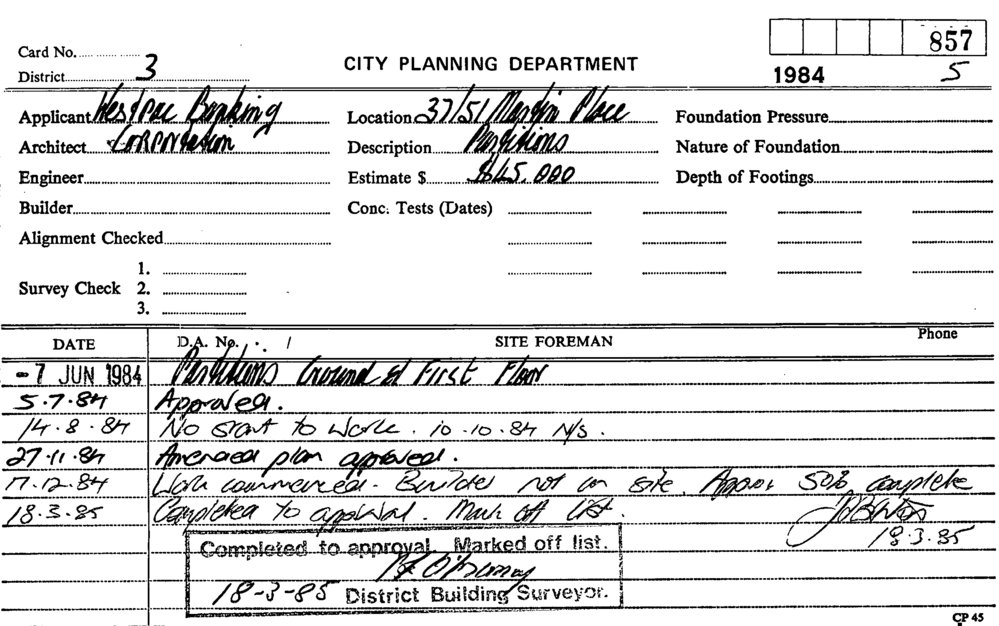 857
Card No.
District 3
CITY PLANNING DEPARTMENT
1984 5
Applicant Westpac Banking
Location 37/51 Martin Place
Foundation Pressure
Architect Corporation
Description Partitions
Nature of Foundation
Engineer
Estimate $ $45,000
Depth of Footings
Builder
Conc. Tests (Dates)
Alignment Checked
Survey Check 1. 2. 3.
DATE D.A. No. SITE FOREMAN Phone
-7 JUN 1984 Partitions Ground & First Floor
5.7.84 Approved.
14.8.84 No start to work. 10.10.84 N/S.
27.11.84 Amended plan approved.
17.12.84 Work commenced. Builder not on site. Approx 50% complete
18.3.85 Completed to approval. Mark off list.
18.3.85
Completed to approval. Marked off list.
18-3-85 District Building Surveyor.
CP 45